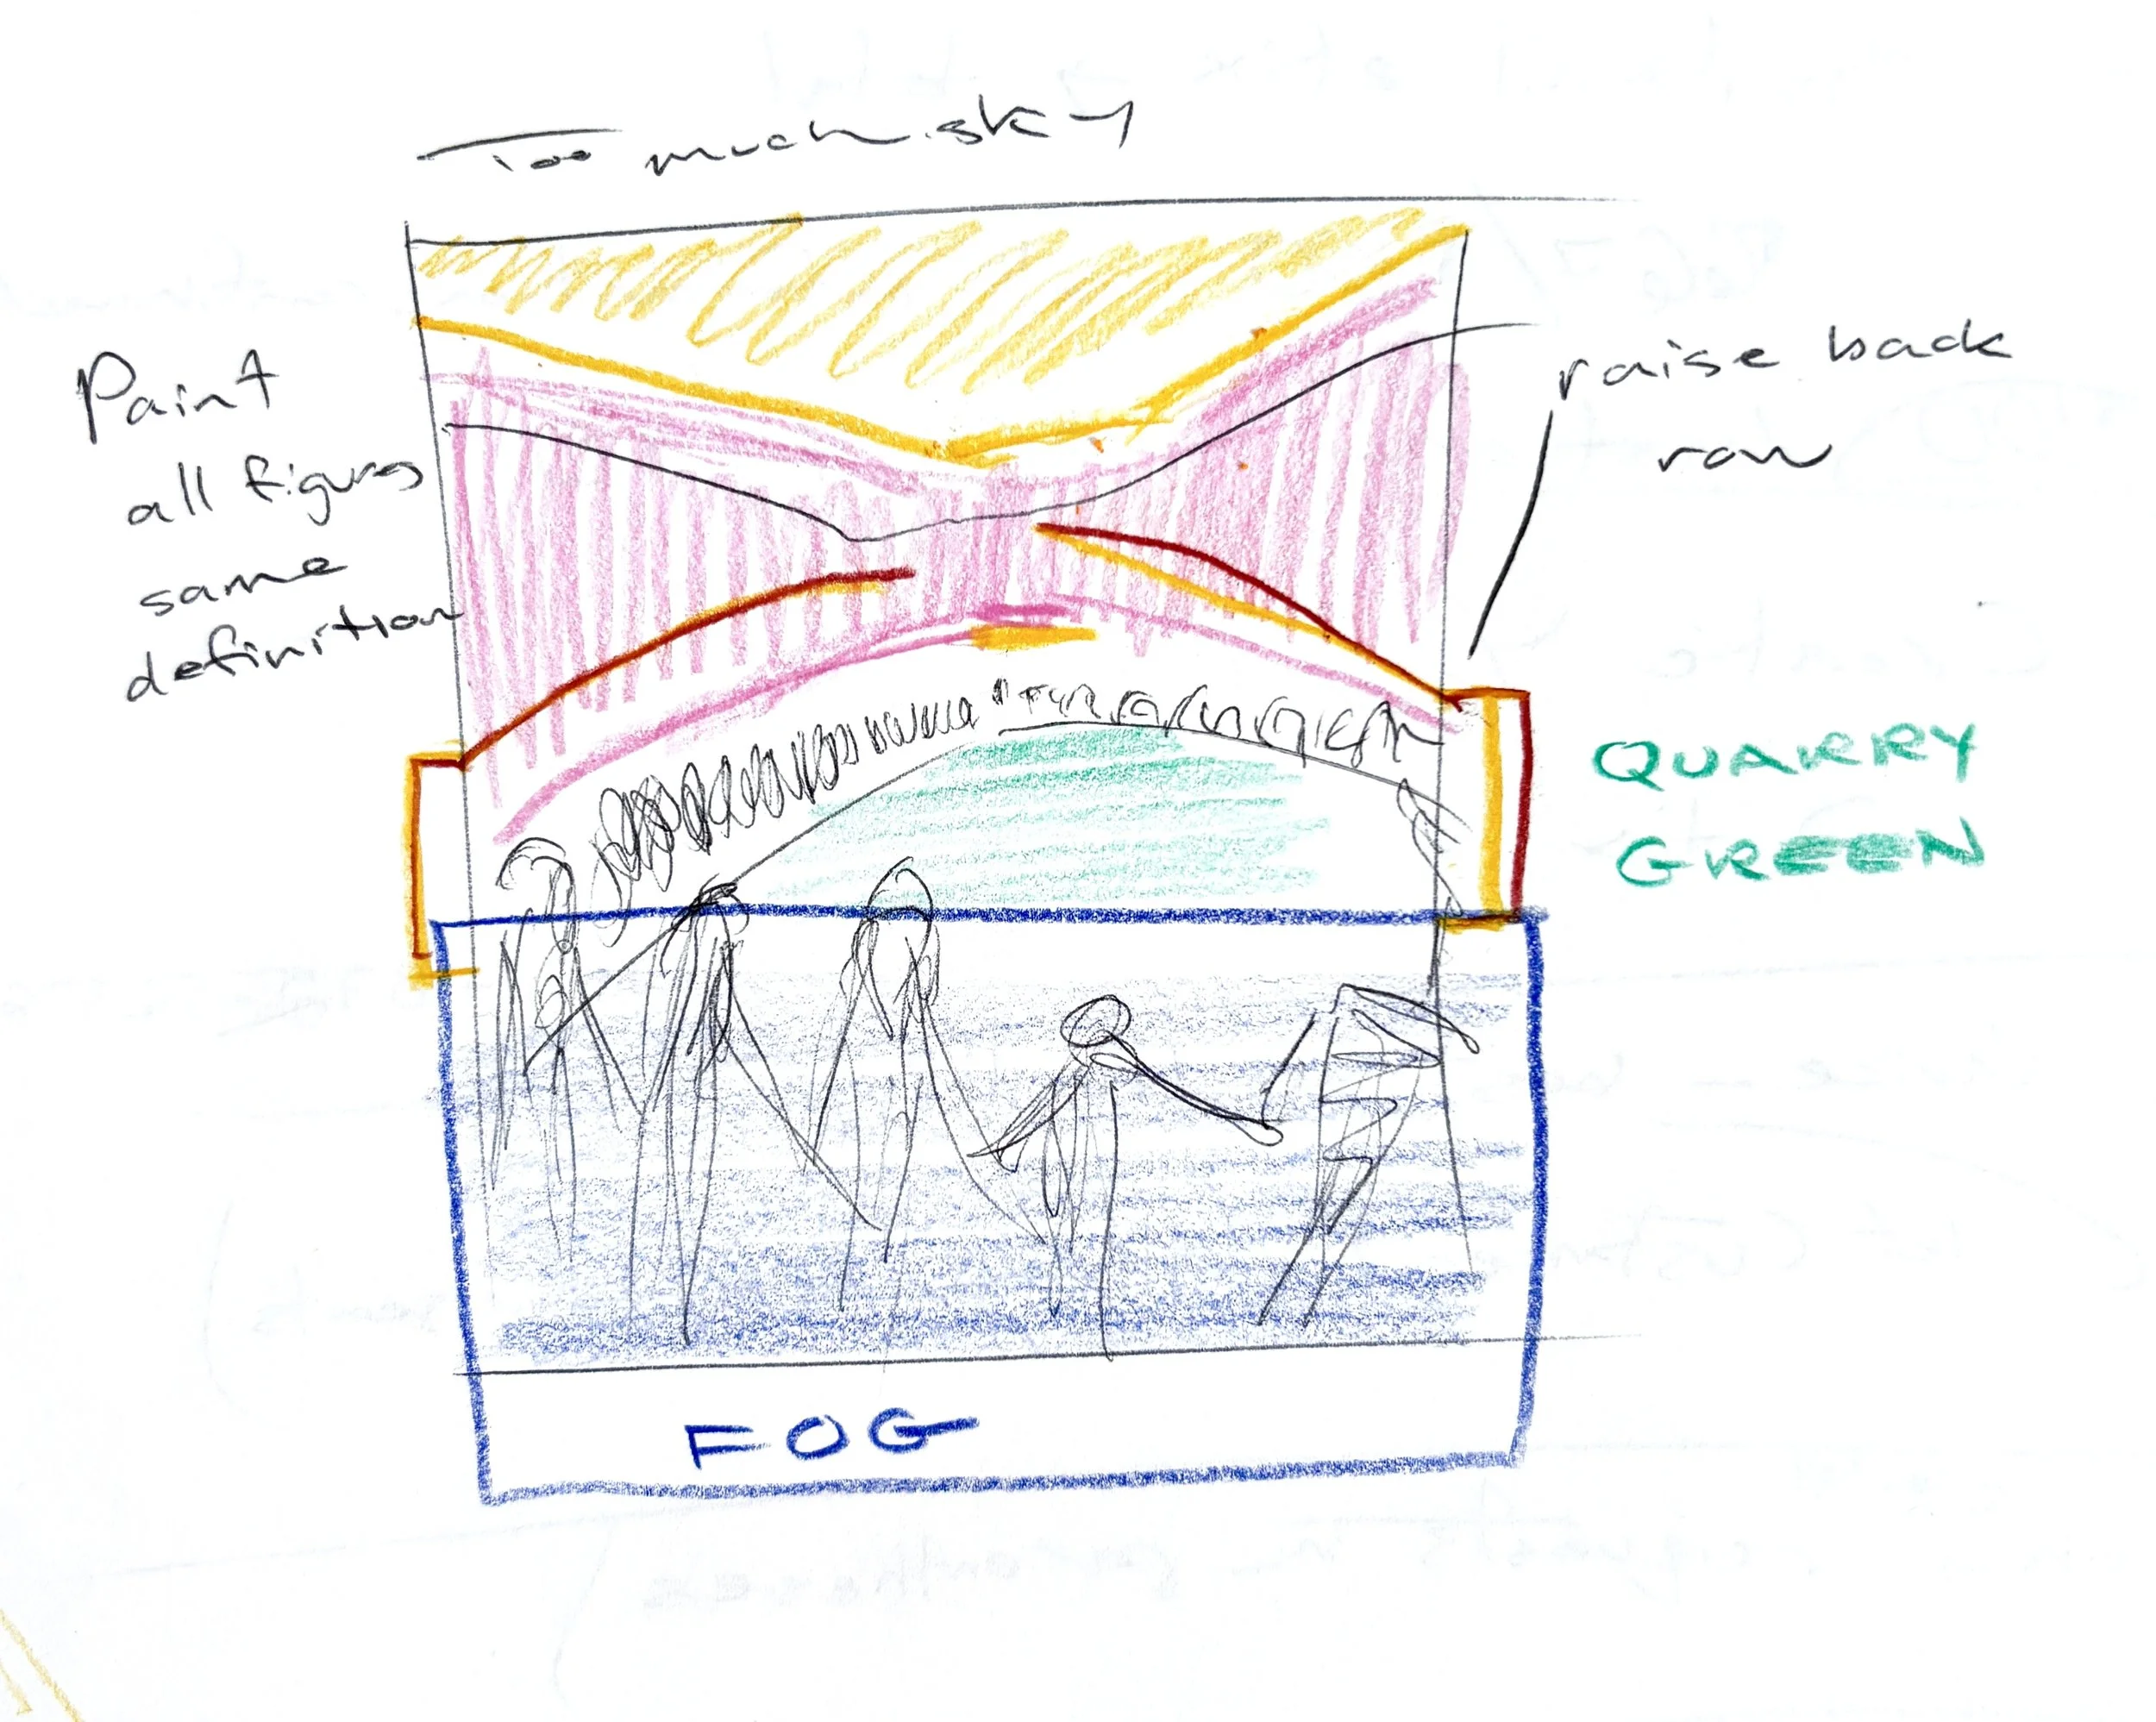 Too much sky
Paint
all figures
same
definition
raise back
row
QUARRY
GREEN
FOG